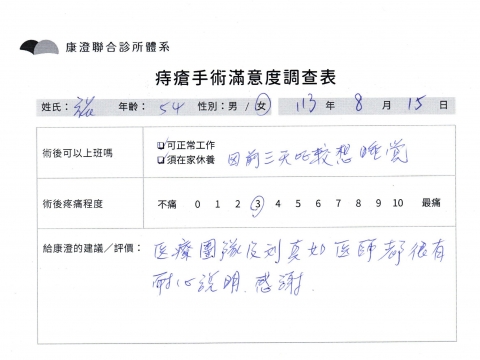 康澄聯合診所體系
痔瘡手術滿意度調查表
姓氏： 年齡：54 性別：男 / 女 113 年 8 月 15 日
術後可以上班嗎
可正常工作
須在家休養
因前三天吃較想睡觉
術後疼痛程度 不痛 0 1 2 3 4 5 6 7 8 9 10 最痛
給康澄的建議／評價：
医療團隊及刘真如医師都很有
耐心說明.感謝.